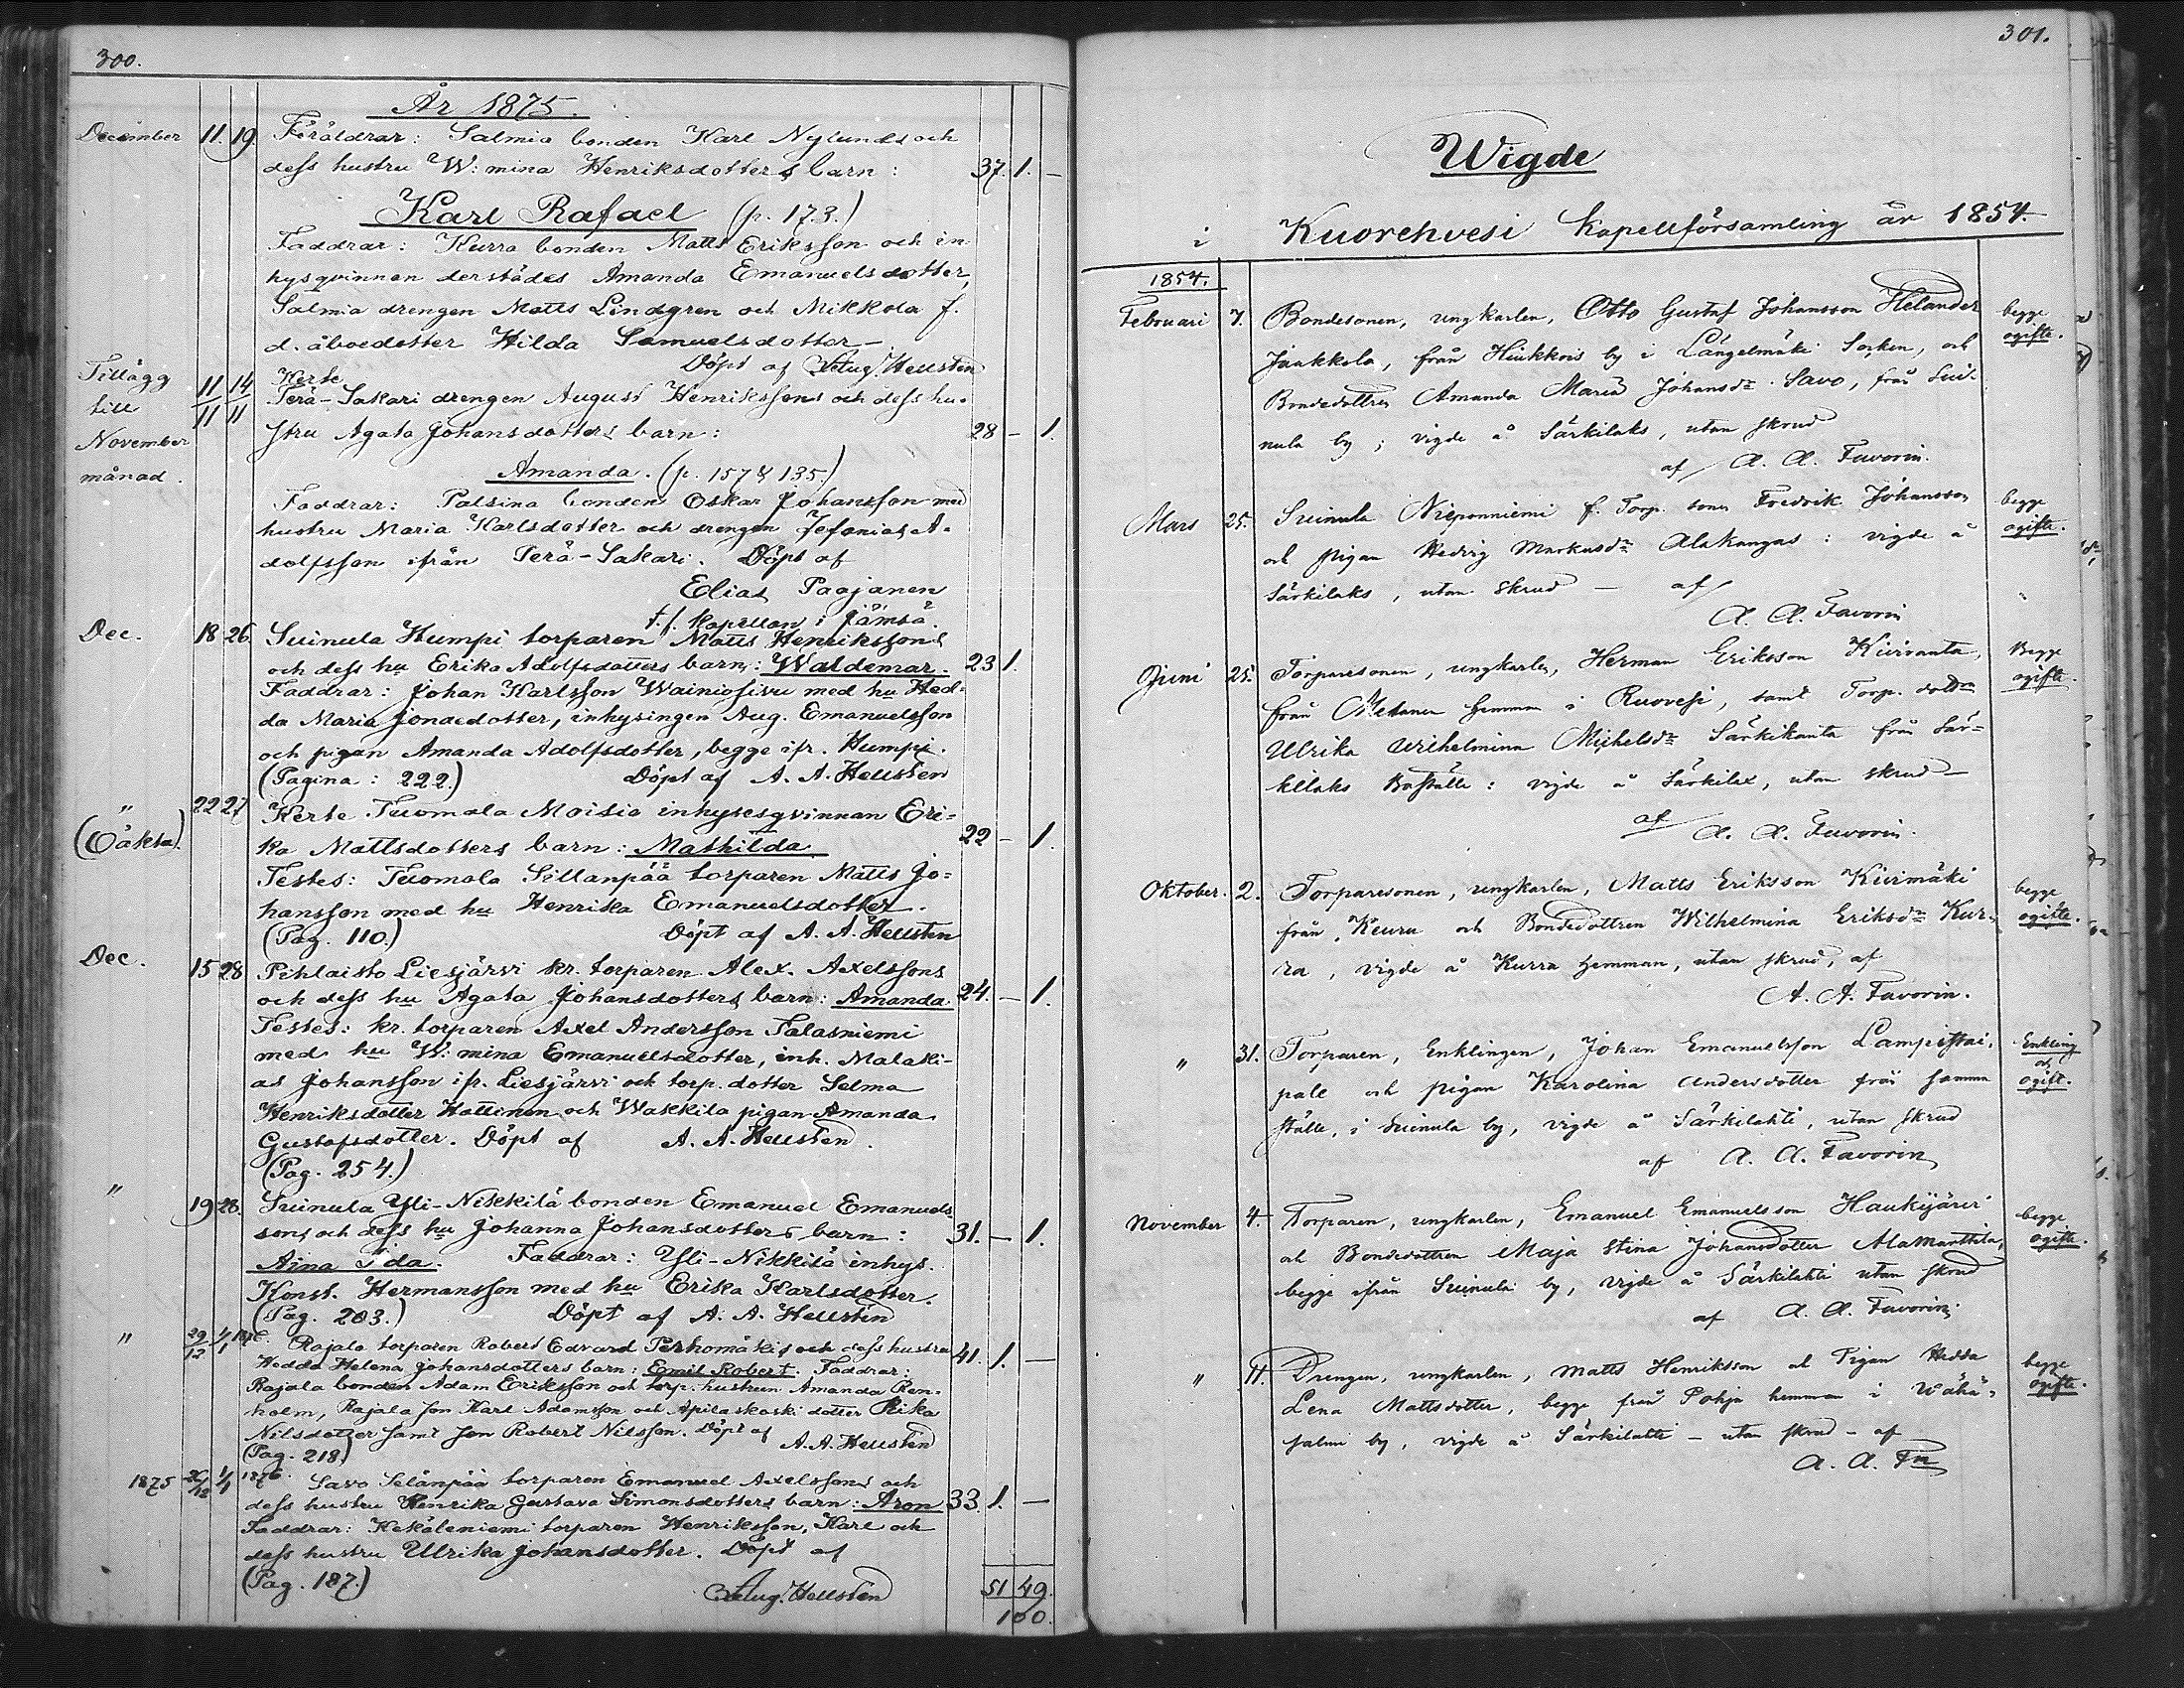 300.
År 1875.
December 11. 19. Föräldrar: Salmia bonden Karl Nylunds och
dess hustru W:mina Henriksdotters barn: 37. 1. —
Karl Rafael (p. 173.)
Faddrar: Kurra bonden Matts Eriksson och in
hysqvinnan derstädes Amanda Emanuelsdotter,
Salmia drengen Matts Lindgren och Mikkola f.
d. åboedotter Hilda Samuelsdotter —
Döpt af Aug. Hellstén
Tillägg till November månad. 11/11 14/11 Kerte
Perä-Sakari drengen August Henrikssons och dess hu-
stru Agata Johansdotters barn: 28 — 1.
Amanda. (p. 157 & 135.)
Faddrar: Palsina bonden Oskar Johansson med
hustru Maria Karlsdotter och drengen Zefanias A-
dolfsson ifrån Perä-Sakari. Döpt af
Elias Paajanen
t.f. kapellan i Jämsä.
Dec. 18 26 Suinula Humpi torparen Matts Henrikssons
och dess hu Erika Adolfsdotters barn: Waldemar. 23 1.
Faddrar: Johan Karlsson Wainiosivu med hu Hed-
da Maria Jonaedotter, inhysingen Aug. Emanuelsson
och pigan Amanda Adolfsdotter, begge ifr. Humpi.
(Pagina: 222.) Döpt af A. A. Hellstén
" (Oäkta). 22 27 Kerte Tuomala Moisio inhysesqvinnan Eri-
ka Mattsdotters barn: Mathilda 22 — 1.
Testes: Tuomala Sillanpää torparen Matts Jo-
hansson med hu Henrika Emanuelsdotter.
(Pag. 110.) Döpt af A. A. Hellstén
Dec. 15 28 Pihlaisto Liesjärvi kr. torparen Alex. Axelssons
och dess hu Agata Johansdotters barn: Amanda. 24. — 1.
Testes: kr. torparen Axel Andersson Talasniemi
med hu W:mina Emanuelsdotter, inh. Malaki-
as Johansson ifr. Liesjärvi och torp. dotter Selma
Henriksdotter Hattinen och Wakkila pigan Amanda
Gustafsdotter. Döpt af A. A. Hellstén.
(Pag. 254.)
" 19 28. Suinula Yli-Nikkilä bonden Emanuel Emanuels-
sons och dess hu Johanna Johansdotters barn: 31. — 1.
Aina Ida. Faddrar: Yli-Nikkilä inhys.
Konst. Hermansson med hu Erika Karlsdotter.
(Pag. 203.) Döpt af A. A. Hellstén
" 29/12 4/1 1876. Rajala torparen Robert Edvard Perhomäkis och dess hustru 41. 1. —
Hedda Helena Johansdotters barn: Emil Robert. Faddrar:
Rajala bonden Adam Eriksson och torp. hustrun Amanda Ren-
holm, Rajala son Karl Adamsson och Apilaskoski dotter Rika
Nilsdotter samt son Robert Nilsson. Döpt af
(Pag. 218) A. A. Hellstén
1875 26/12 1/1 1876. Savo Selänpää torparen Emanuel Axelssons och
dess hustru Henrika Gustava Simonsdotters barn: Aron 33. 1. —
Faddrar: Kekäleniemi torparen Henriksson, Karl och
dess hustru Ulrika Johansdotter. Döpt af
(Pag. 187.) Aug. Hellstén
51 49.
100.
301.
Wigde
i Kuorehvesi kapellförsamling år 1854.
1854.
Februari 7. Bondesonen, ungkarlen, Otto Gustaf Johansson Helander begge
Jaakkola, från Hiukkois by i Längelmäki Socken, och ogifte.
Bondedottren Amanda Maria Johansdr Savo, från Sui-
nula by; vigde å Särkilaks, utan skrud
af A. A. Favorin.
Mars 25. Suinula Nieponniemi f. Torp. sonen Fredrik Johansson begge
och pigan Hedvig Markusdr Alakangas: vigde å ogifte.
Särkilaks, utan skrud — af
A. A. Favorin
Juni 25. Torparesonen, ungkarlen, Herman Eriksson Kiiroanta, Begge
från hemman i Ruovesi, samt Torp. dottr ogifte.
Ulrika Wilhelmina Michelsdr Särkikanta från Sär-
kilaks Boställe: vigde å Särkilax, utan skrud —
af A. A. Favorin.
Oktober. 2. Torparesonen, ungkarlen, Matts Eriksson Kiirimäki begge
från Keuru och Bondedottren Wilhelmina Eriksdr Kur- ogifte.
ra, vigde å Kurra hemman, utan skrud, af
A. A. Favorin.
" 31. Torparen, Enklingen, Johan Emanuelsson Lampistai- Enkling
pale och pigan Karolina Andersdotter från samma och
ställe, i Suinula by, vigde å Särkilahti, utan skrud ogift.
af A. A. Favorin
November 4. Torparen, ungkarlen, Emanuel Emanuelsson Haukijärvi begge
och Bondedottren Maja Stina Johansdotter Alamarttila, ogifte.
begge ifrån Suinula by, vigde å Särkilahti utan skrud
af A. A. Favorin.
" 11. Drengen, ungkarlen, Matts Henriksson och Pigan Hedda begge
Lena Mattsdotter, begge från Pohja hemman i Wähä- ogifte.
salmi by, vigde å Särkilahti – utan skrud – af
A. A. Fn